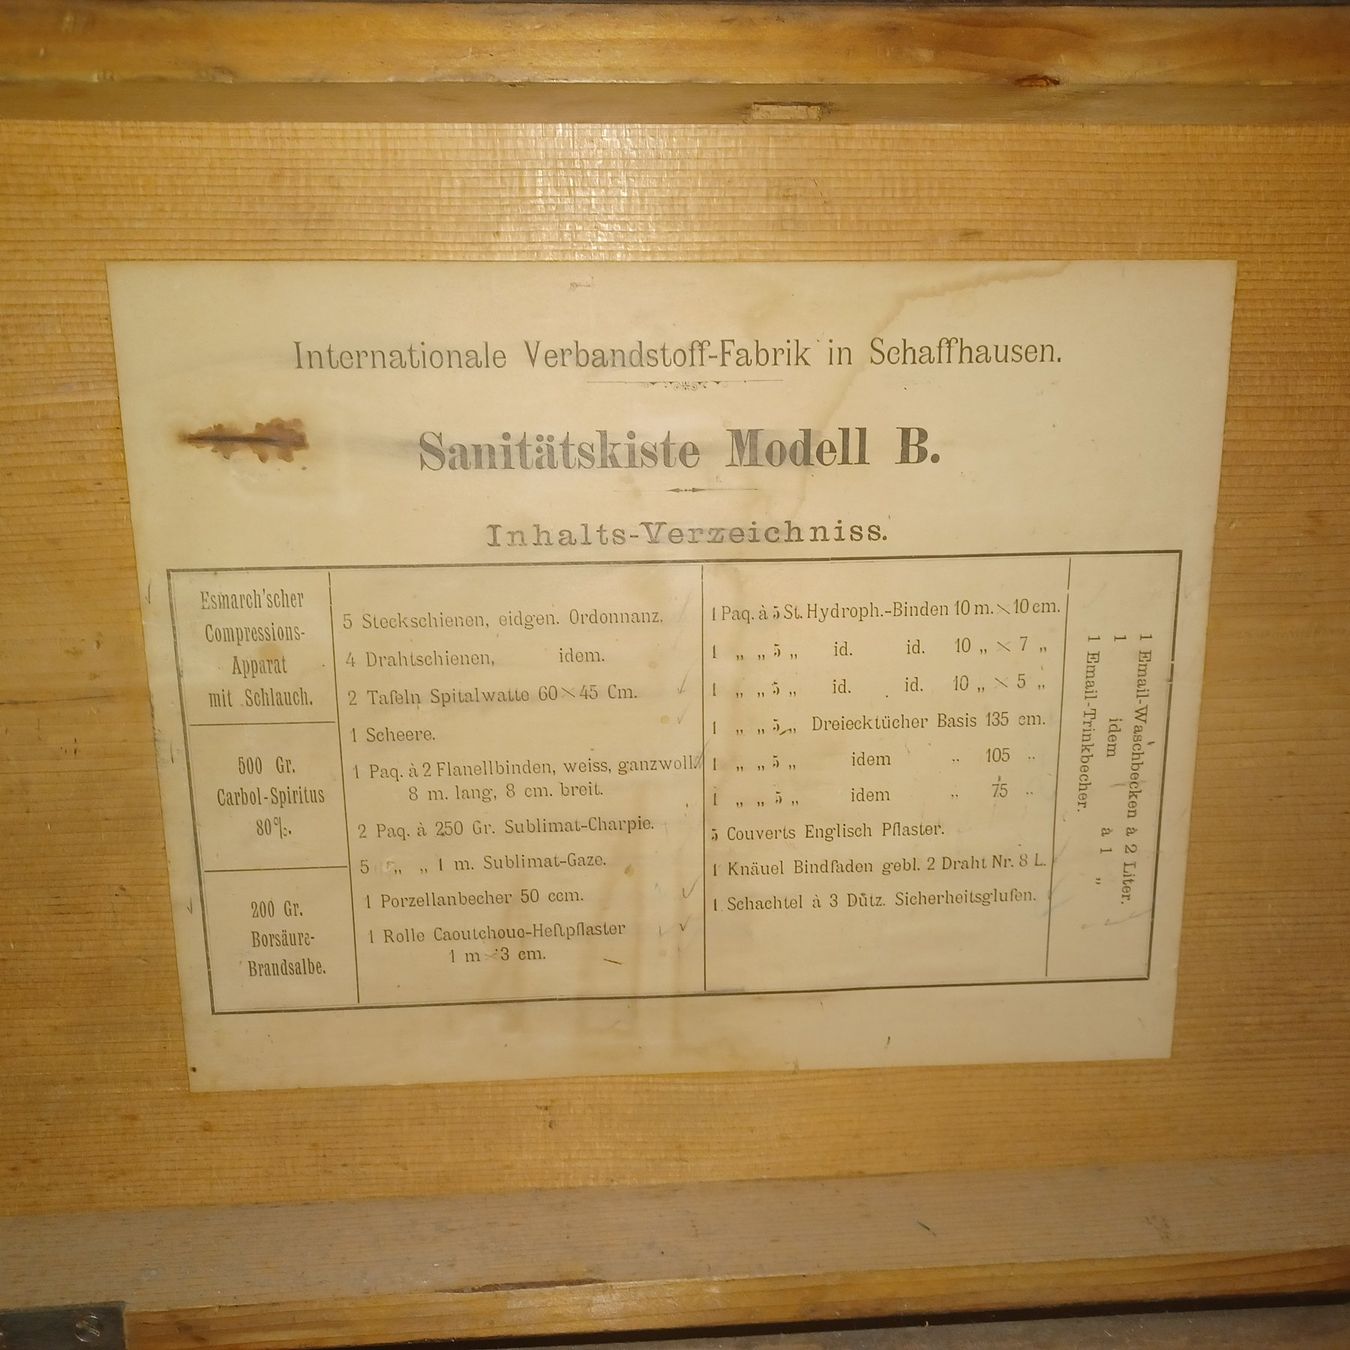 Internationale Verbandstoff-Fabrik in Schaffhausen.
Sanitätskiste Modell B.
Inhalts-Verzeichniss.
Esmarch'scher
Compressions-
Apparat
mit Schlauch.
500 Gr.
Carbol-Spiritus
80%.
200 Gr.
Borsäure-
Brandsalbe.
5 Steckschienen, eidgen. Ordonnanz.
4 Drahtschienen, idem.
2 Tafeln Spitalwatte 60×45 Cm.
1 Scheere.
1 Paq. à 2 Flanellbinden, weiss, ganzwoll.
8 m. lang, 8 cm. breit.
2 Paq. à 250 Gr. Sublimat-Charpie.
5 „ „ 1 m. Sublimat-Gaze.
1 Porzellanbecher 50 ccm.
1 Rolle Caoutchouc-Heftpflaster
1 m × 3 cm.
1 Paq. à 5 St. Hydroph.-Binden 10 m. × 10 cm.
1 „ „ 5 „ id. id. 10 „ × 7 „
1 „ „ 5 „ id. id. 10 „ × 5 „
1 „ „ 5 „ Dreiecktücher Basis 135 cm.
1 „ „ 5 „ idem „ 105 „
1 „ „ 5 „ idem „ 75 „
5 Couverts Englisch Pflaster.
1 Knäuel Bindfaden gebl. 2 Draht Nr. 8 L.
1 Schachtel à 3 Dütz. Sicherheitsglufen.
1 Email-Waschbecken à 2 Liter.
1 idem à 1 „
1 Email-Trinkbecher.